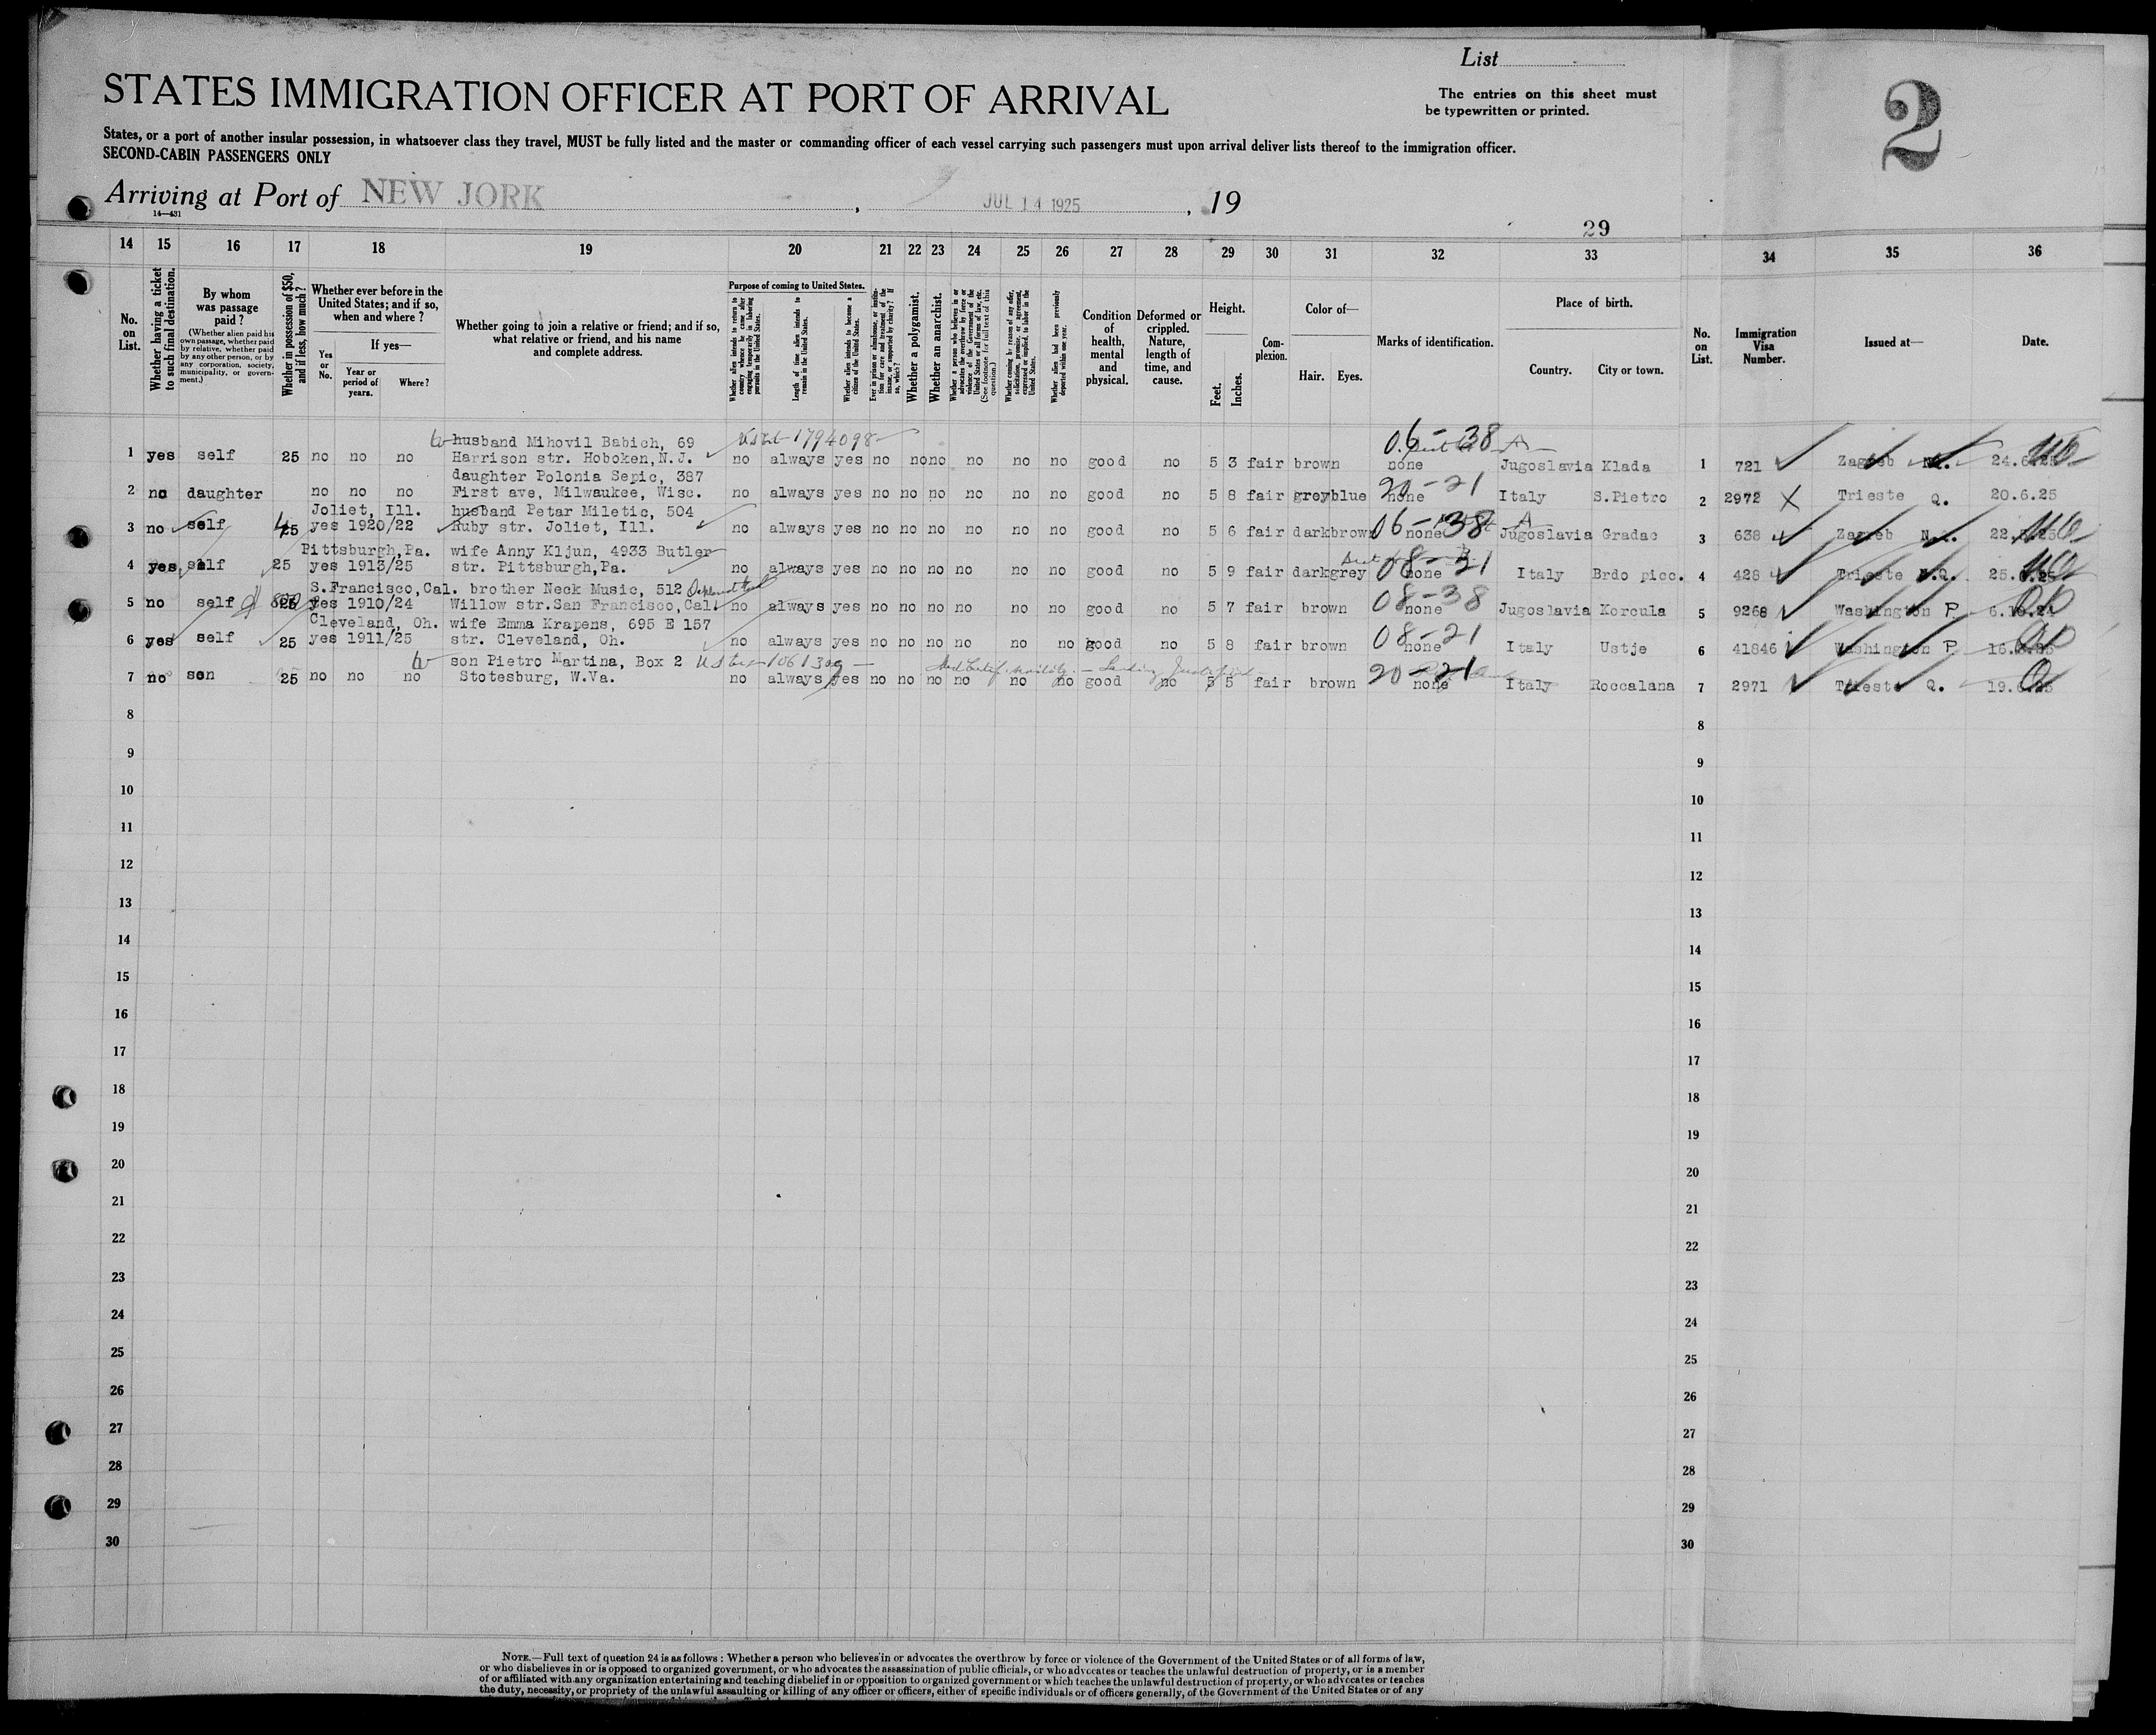 List
STATES IMMIGRATION OFFICER AT PORT OF ARRIVAL
The entries on this sheet must
be typewritten or printed.
2
States, or a port of another insular possession, in whatsoever class they travel, MUST be fully listed and the master or commanding officer of each vessel carrying such passengers must upon arrival deliver lists thereof to the immigration officer.
SECOND-CABIN PASSENGERS ONLY
Arriving at Port of NEW JORK , JUL 14 1925 , 19
14—431
29
14 15 16 17 18 19 20 21 22 23 24 25 26 27 28 29 30 31 32 33 34 35 36
No. on List.
Whether having a ticket to such final destination.
By whom was passage paid?
(Whether alien paid his own passage, whether paid by relative, whether paid by any other person, or by any corporation, society, municipality, or government.)
Whether in possession of $50, and if less, how much?
Whether ever before in the United States; and if so, when and where?
Yes or No.
If yes—
Year or period of years.
Where?
Whether going to join a relative or friend; and if so, what relative or friend, and his name and complete address.
Purpose of coming to United States.
Whether alien intends to return to country whence he came after engaging temporarily in laboring pursuits in the United States.
Length of time alien intends to remain in the United States.
Whether alien intends to become a citizen of the United States.
Ever in prison or almshouse, or institution for care and treatment of the insane, or supported by charity? If so, which?
Whether a polygamist.
Whether an anarchist.
Whether a person who believes in or advocates the overthrow by force or violence of the Government of the United States or all forms of law, etc. (See footnote for full text of this question.)
Whether coming by reason of any offer, solicitation, promise, or agreement, expressed or implied, to labor in the United States.
Whether alien had been previously deported within one year.
Condition of health, mental and physical.
Deformed or crippled. Nature, length of time, and cause.
Height.
Feet. Inches.
Complexion.
Color of—
Hair. Eyes.
Marks of identification.
Place of birth.
Country. City or town.
No. on List.
Immigration Visa Number.
Issued at—
Date.
husband Mihovil Babich, 69 1794098 06-38 A
1 yes self 25 no no no Harrison str. Hoboken, N.J. no always yes no no no no no no good no 5 3 fair brown none Jugoslavia Klada 1 721 Zagreb 24.6.25
daughter Polonia Sepic, 387 20-21
2 no daughter no no no First ave, Milwaukee, Wisc. no always yes no no no no no no good no 5 8 fair grey blue none Italy S.Pietro 2 2972 X Trieste Q. 20.6.25
Joliet, Ill. husband Petar Miletic, 504 06-38 A
3 no self 25 yes 1920/22 Ruby str. Joliet, Ill. no always yes no no no no no no good no 5 6 fair dark brown none Jugoslavia Gradac 3 638 Zagreb
Pittsburgh, Pa. wife Anny Kljun, 4933 Butler 08-21
4 yes self 25 yes 1913/25 str. Pittsburgh, Pa. no always yes no no no no no no good no 5 9 fair dark grey none Italy Brdo picc. 4 428 Trieste N.Q.
S.Francisco, Cal. brother Neck Music, 512 08-38
5 no self 25 yes 1910/24 Willow str. San Francisco, Cal. no always yes no no no no no no good no 5 7 fair brown none Jugoslavia Korcula 5 9268 Washington P.
Cleveland, Oh. wife Emma Krapens, 695 E 157 08-21
6 yes self 25 yes 1911/25 str. Cleveland, Oh. no always yes no no no no no no good no 5 8 fair brown none Italy Ustje 6 41846 Washington P
son Pietro Martina, Box 2 20-21
7 no son 25 no no no Stotesburg, W.Va. no always yes no no no no no no good no 5 5 fair brown none Italy Roccalana 7 2971 Trieste Q.
8 8
9 9
10 10
11 11
12 12
13 13
14 14
15 15
16 16
17 17
18 18
19 19
20 20
21 21
22 22
23 23
24 24
25 25
26 26
27 27
28 28
29 29
30 30
NOTE.—Full text of question 24 is as follows: Whether a person who believes in or advocates the overthrow by force or violence of the Government of the United States or of all forms of law,
or who disbelieves in or is opposed to organized government, or who advocates the assassination of public officials, or who advocates or teaches the unlawful destruction of property, or is a member
of or affiliated with any organization entertaining and teaching disbelief in or opposition to organized government or which teaches the unlawful destruction of property, or who advocates or teaches
the duty, necessity, or propriety of the unlawful assaulting or killing of any officer or officers, either of specific individuals or of officers generally, of the Government of the United States or of any